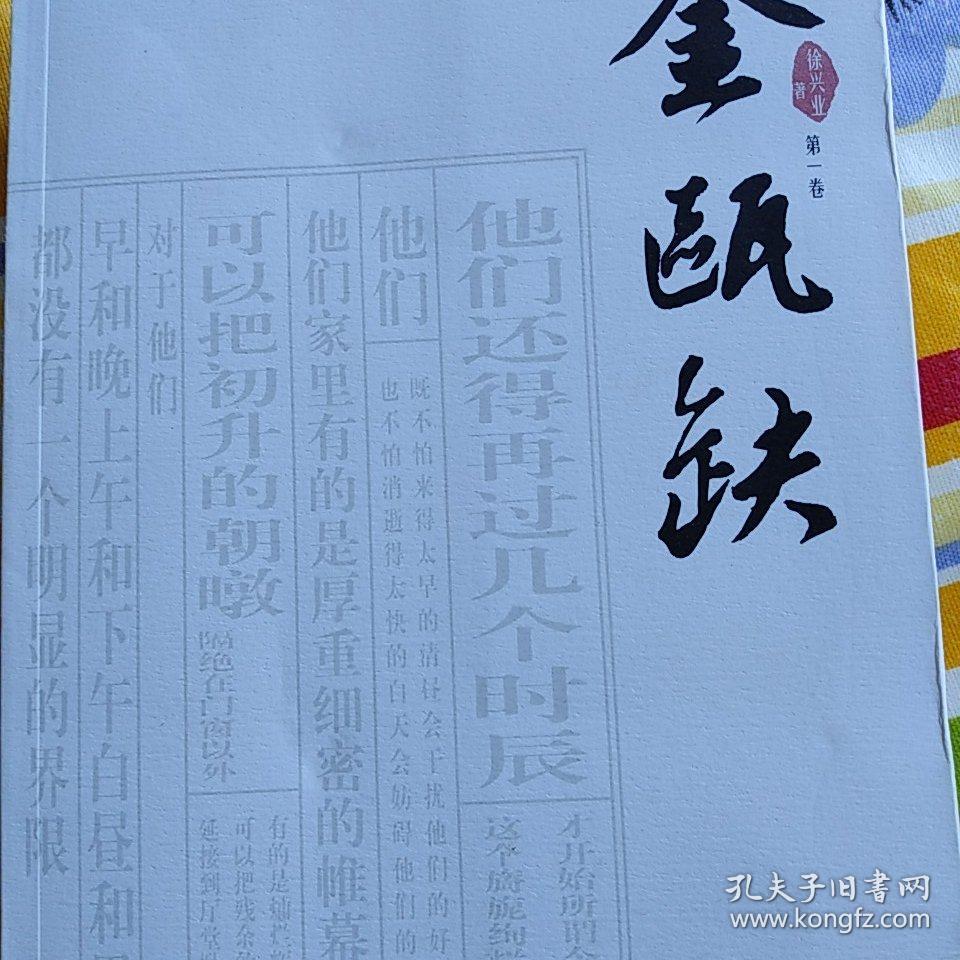 金瓯缺
徐兴业
著
第一卷
他们还得再过几个时辰
才开始所谓
这个旖旎绚
他们
既不怕来得太早的清昼会干扰他们的好
也不怕消逝得太快的白天会妨碍他们的
他们家里有的是厚重细密的帷幕
可以把初升的朝暾
隔绝在门窗以外
有的是灿烂辉
可以把残余的
延接到厅堂
对于他们
早和晚上午和下午白昼和黑
都没有一个明显的界限
孔夫子旧书网
www.kongfz.com